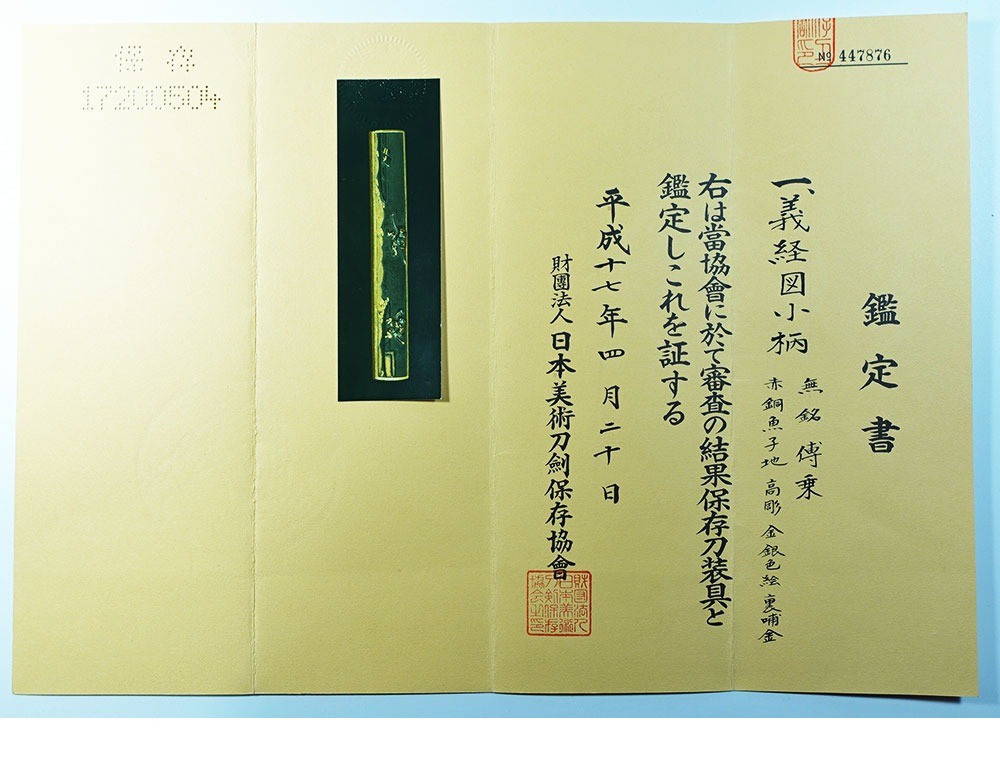 № 447876
鑑定書
一、義経図小柄
無銘 傳乗
赤銅魚子地 高彫 金銀色絵 裏哺金
右は當協會に於て審査の結果保存刀装具と
鑑定しこれを証する
平成十七年四月二十日
財團法人 日本美術刀劍保存協會
保存
17200504